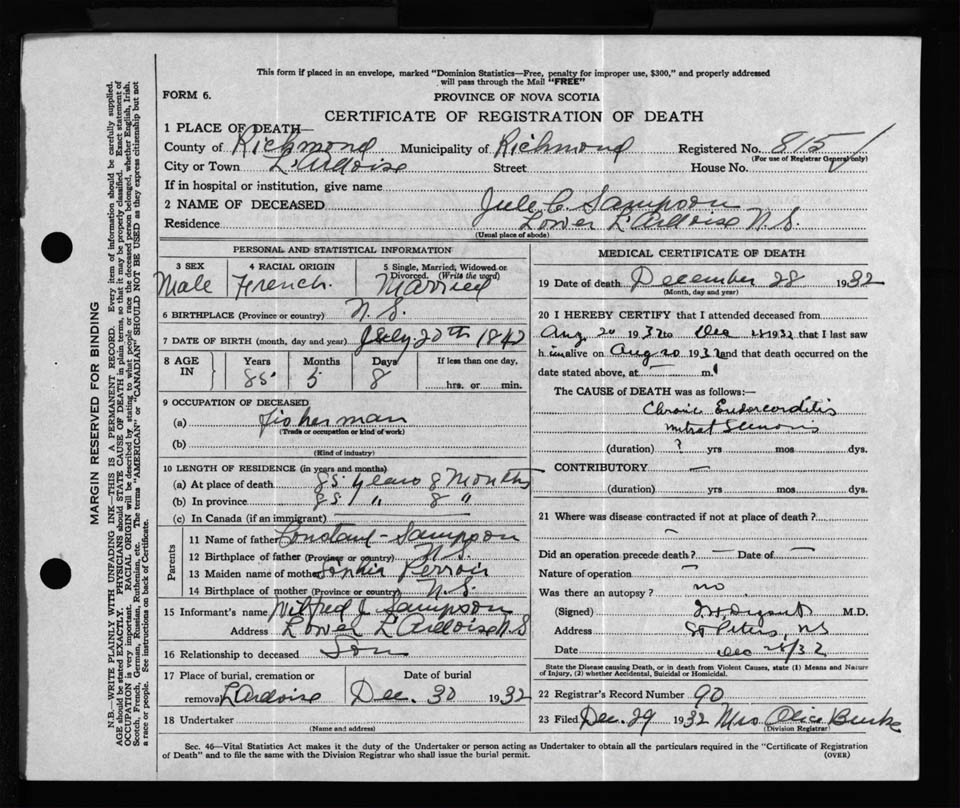 This form if placed in an envelope, marked "Dominion Statistics—Free, penalty for improper use, $300," and properly addressed
will pass through the Mail "FREE"
FORM 6. PROVINCE OF NOVA SCOTIA
CERTIFICATE OF REGISTRATION OF DEATH
1 PLACE OF DEATH—
County of Richmond Municipality of Richmond Registered No. 815
(For use of Registrar General only)
City or Town L'Ardoise Street House No.
If in hospital or institution, give name
2 NAME OF DECEASED Jule C. Sampson
Residence Lower L'Ardoise N.S.
(Usual place of abode)
PERSONAL AND STATISTICAL INFORMATION
3 SEX 4 RACIAL ORIGIN 5 Single, Married, Widowed or
Divorced. (Write the word)
Male French. Married
6 BIRTHPLACE (Province or country) N.S.
7 DATE OF BIRTH (month, day and year) July 20th 1842
8 AGE IN Years Months Days If less than one day,
85 5 8 hrs. or min.
9 OCCUPATION OF DECEASED
(a) Fisherman
(Trade or occupation or kind of work)
(b)
(Kind of industry)
10 LENGTH OF RESIDENCE (in years and months)
(a) At place of death 85 years 8 Months
(b) In province 85 " 8 "
(c) In Canada (if an immigrant)
Parents
11 Name of father Constant Sampson
12 Birthplace of father (Province or country) N.S.
13 Maiden name of mother
14 Birthplace of mother (Province or country) N.S.
15 Informant's name Wilfred J. Sampson
Address Lower L'Ardoise N.S
16 Relationship to deceased Son
17 Place of burial, cremation or Date of burial
removal L'Ardoise Dec. 30 1932
18 Undertaker
(Name and address)
MEDICAL CERTIFICATE OF DEATH
19 Date of death December 28 1932
(Month, day and year)
20 I HEREBY CERTIFY that I attended deceased from
Aug 20 1932 to Dec 1932 that I last saw
him alive on Aug 20 1932 and that death occurred on the
date stated above, at — m.
The CAUSE of DEATH was as follows:—
Chronic Endocarditis
Mitral Stenosis
(duration) ? yrs mos dys.
CONTRIBUTORY —
(duration) yrs mos dys.
21 Where was disease contracted if not at place of death?
Did an operation precede death? — Date of —
Nature of operation —
Was there an autopsy? no
(Signed) M.D.
Address St Peters, NS
Date Dec 28/32
State the Disease causing Death, or in death from Violent Causes, state (1) Means and Nature
of Injury, (2) whether Accidental, Suicidal or Homicidal.
22 Registrar's Record Number 90
23 Filed Dec. 29 1932 Mrs Alice Burke
(Division Registrar)
Sec. 46—Vital Statistics Act makes it the duty of the Undertaker or person acting as Undertaker to obtain all the particulars required in the "Certificate of Registration
of Death" and to file the same with the Division Registrar who shall issue the burial permit. (OVER)
MARGIN RESERVED FOR BINDING
N.B.—WRITE PLAINLY WITH UNFADING INK—THIS IS A PERMANENT RECORD. Every item of information should be carefully supplied.
AGE should be stated EXACTLY. PHYSICIANS should STATE CAUSE OF DEATH in plain terms, so that it may be properly classified. Exact statement of
OCCUPATION is very important. RACIAL ORIGIN will be described by stating to what people or race the deceased person belonged, whether English, Irish,
Scotch, French, German, Russian, Ruthenian, etc. The terms "AMERICAN" or "CANADIAN" SHOULD NOT BE USED as they express citizenship but not
a race or people. See instructions on back of Certificate.